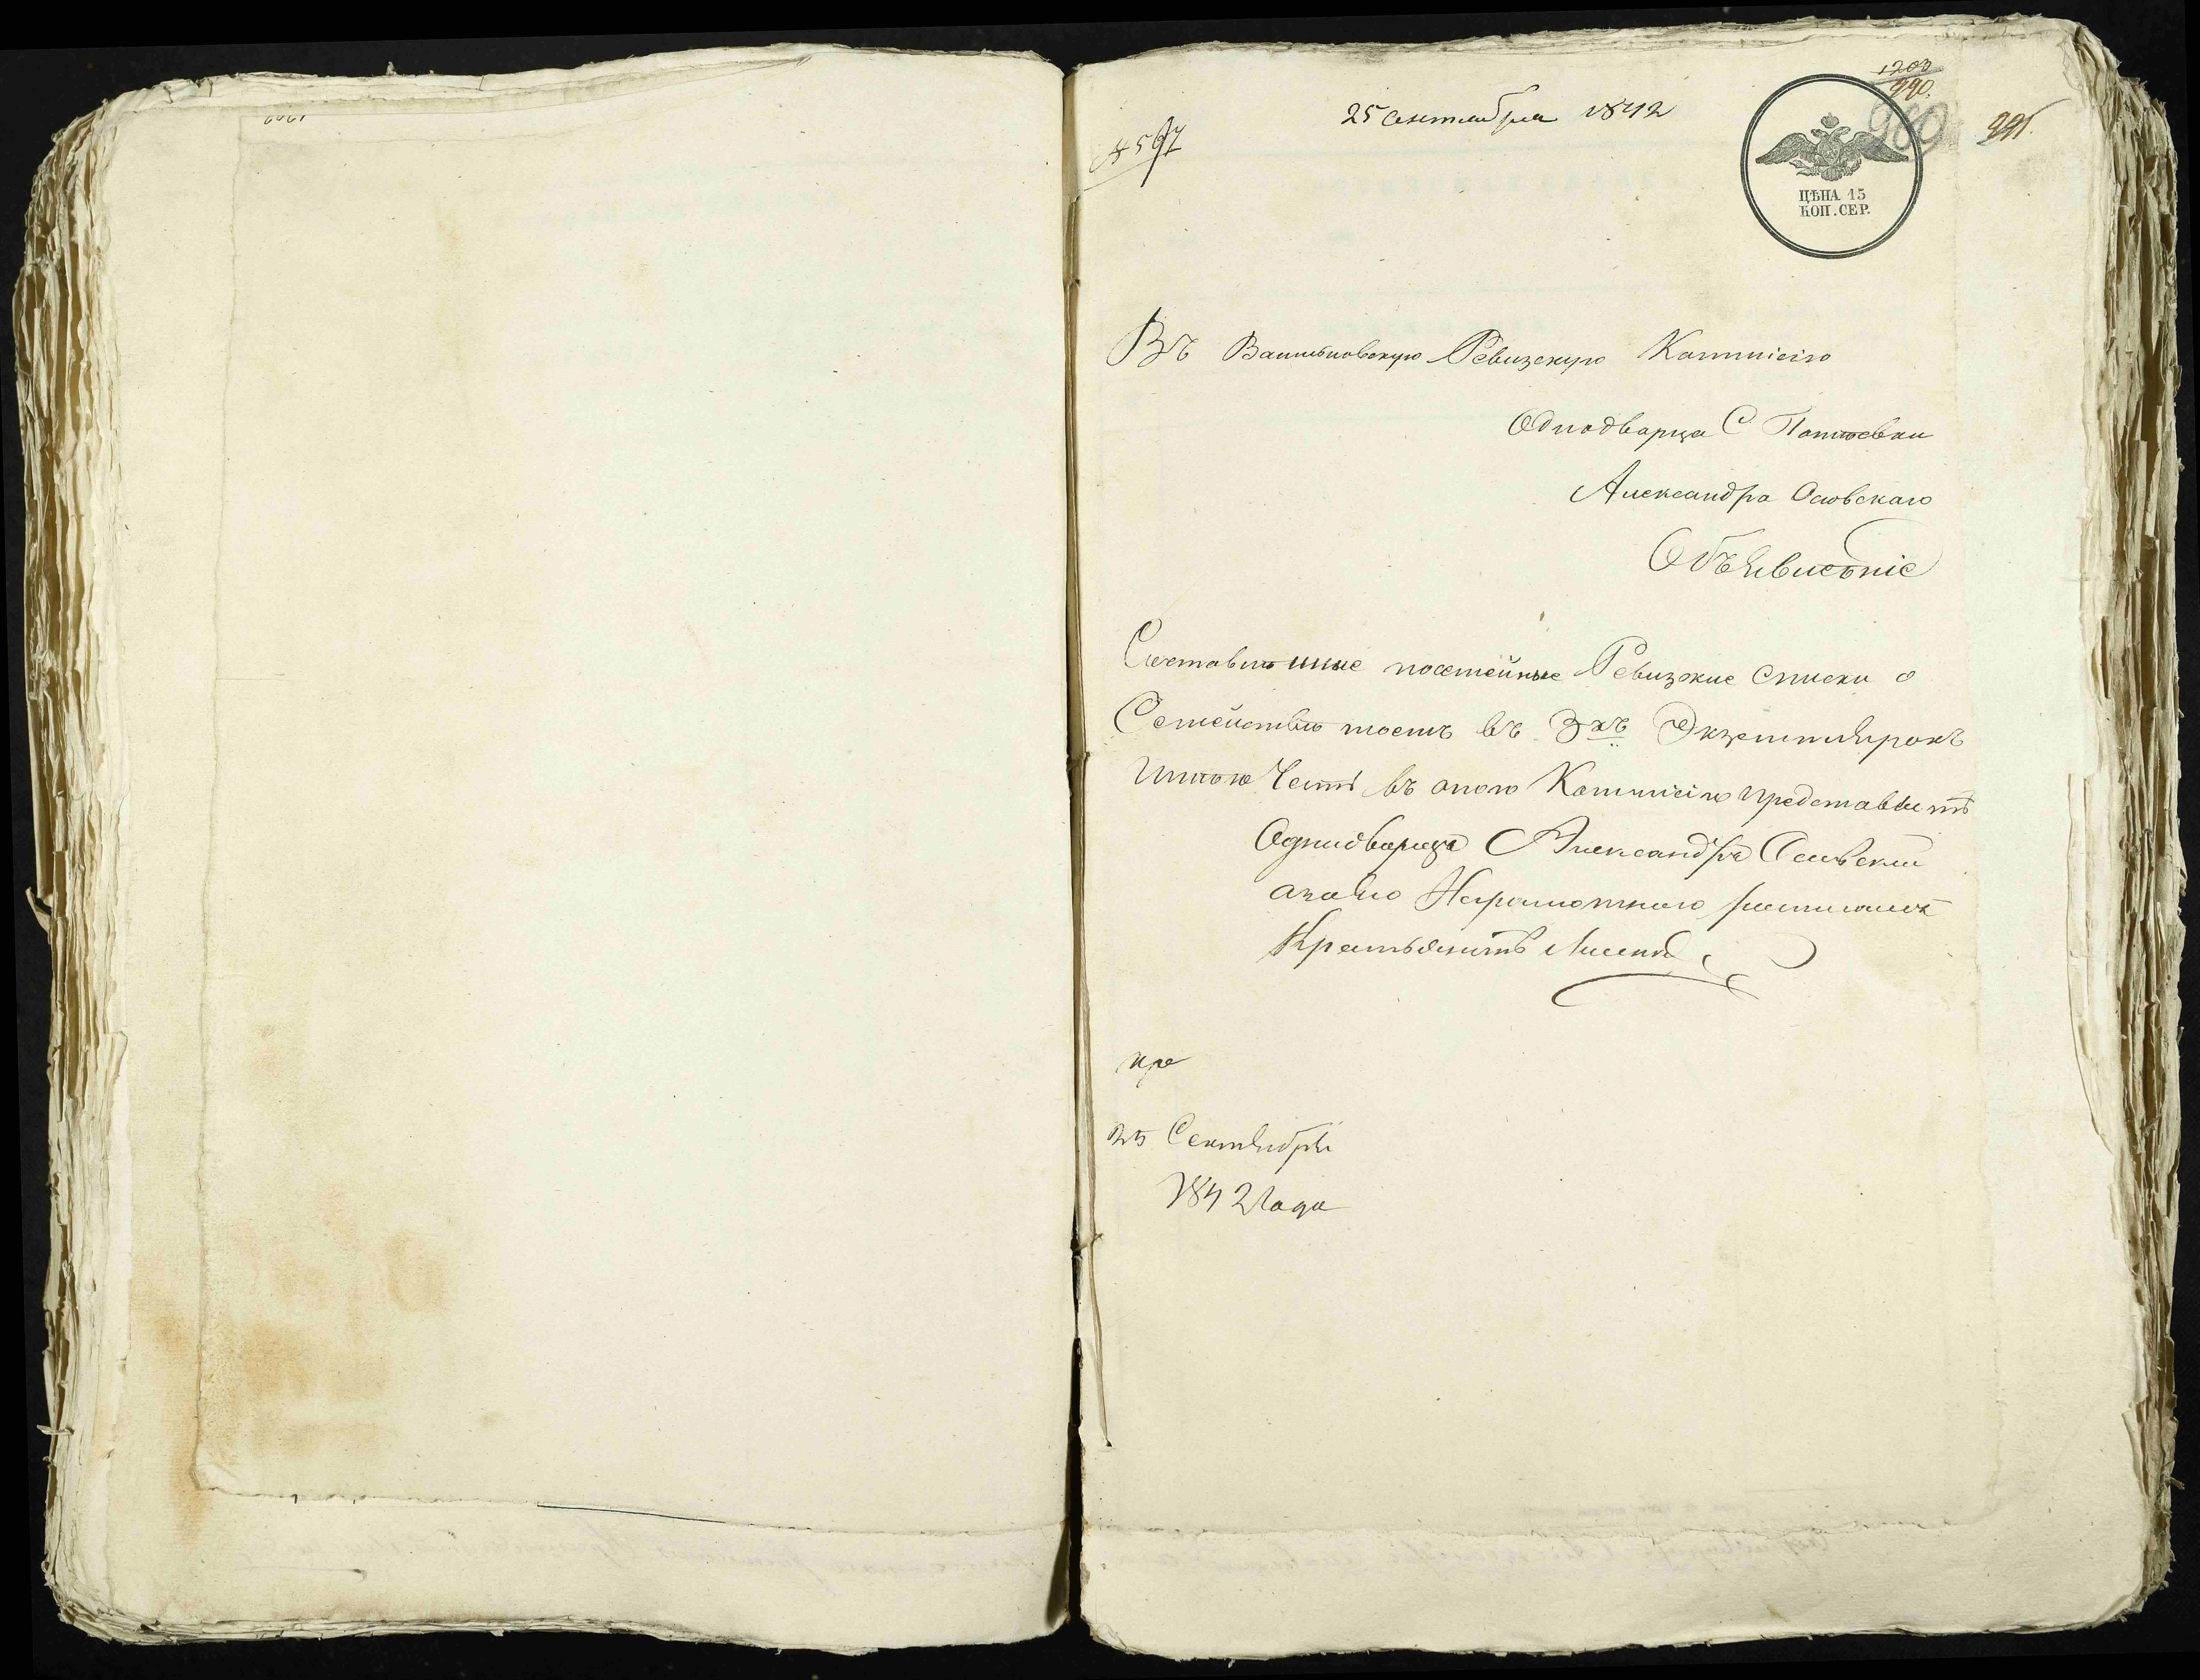 1203
990.
25 Сентября 1842
№ 567
991.
ЦѢНА 15
КОП. СЕР.
Въ Ревизскую Коммісію
Однодворца С
Александра Осовскаго
Объявленіе
Составленные посемейные Ревизкие списки о
Семействѣ моемъ въ 3хъ Экземплярохъ
Имѣю Честь въ оною Коммисію представить
Однодворецъ Александръ Осовский
а за его Неграмотного росписался
Крестьянинъ
25 Сентября
1842 Года